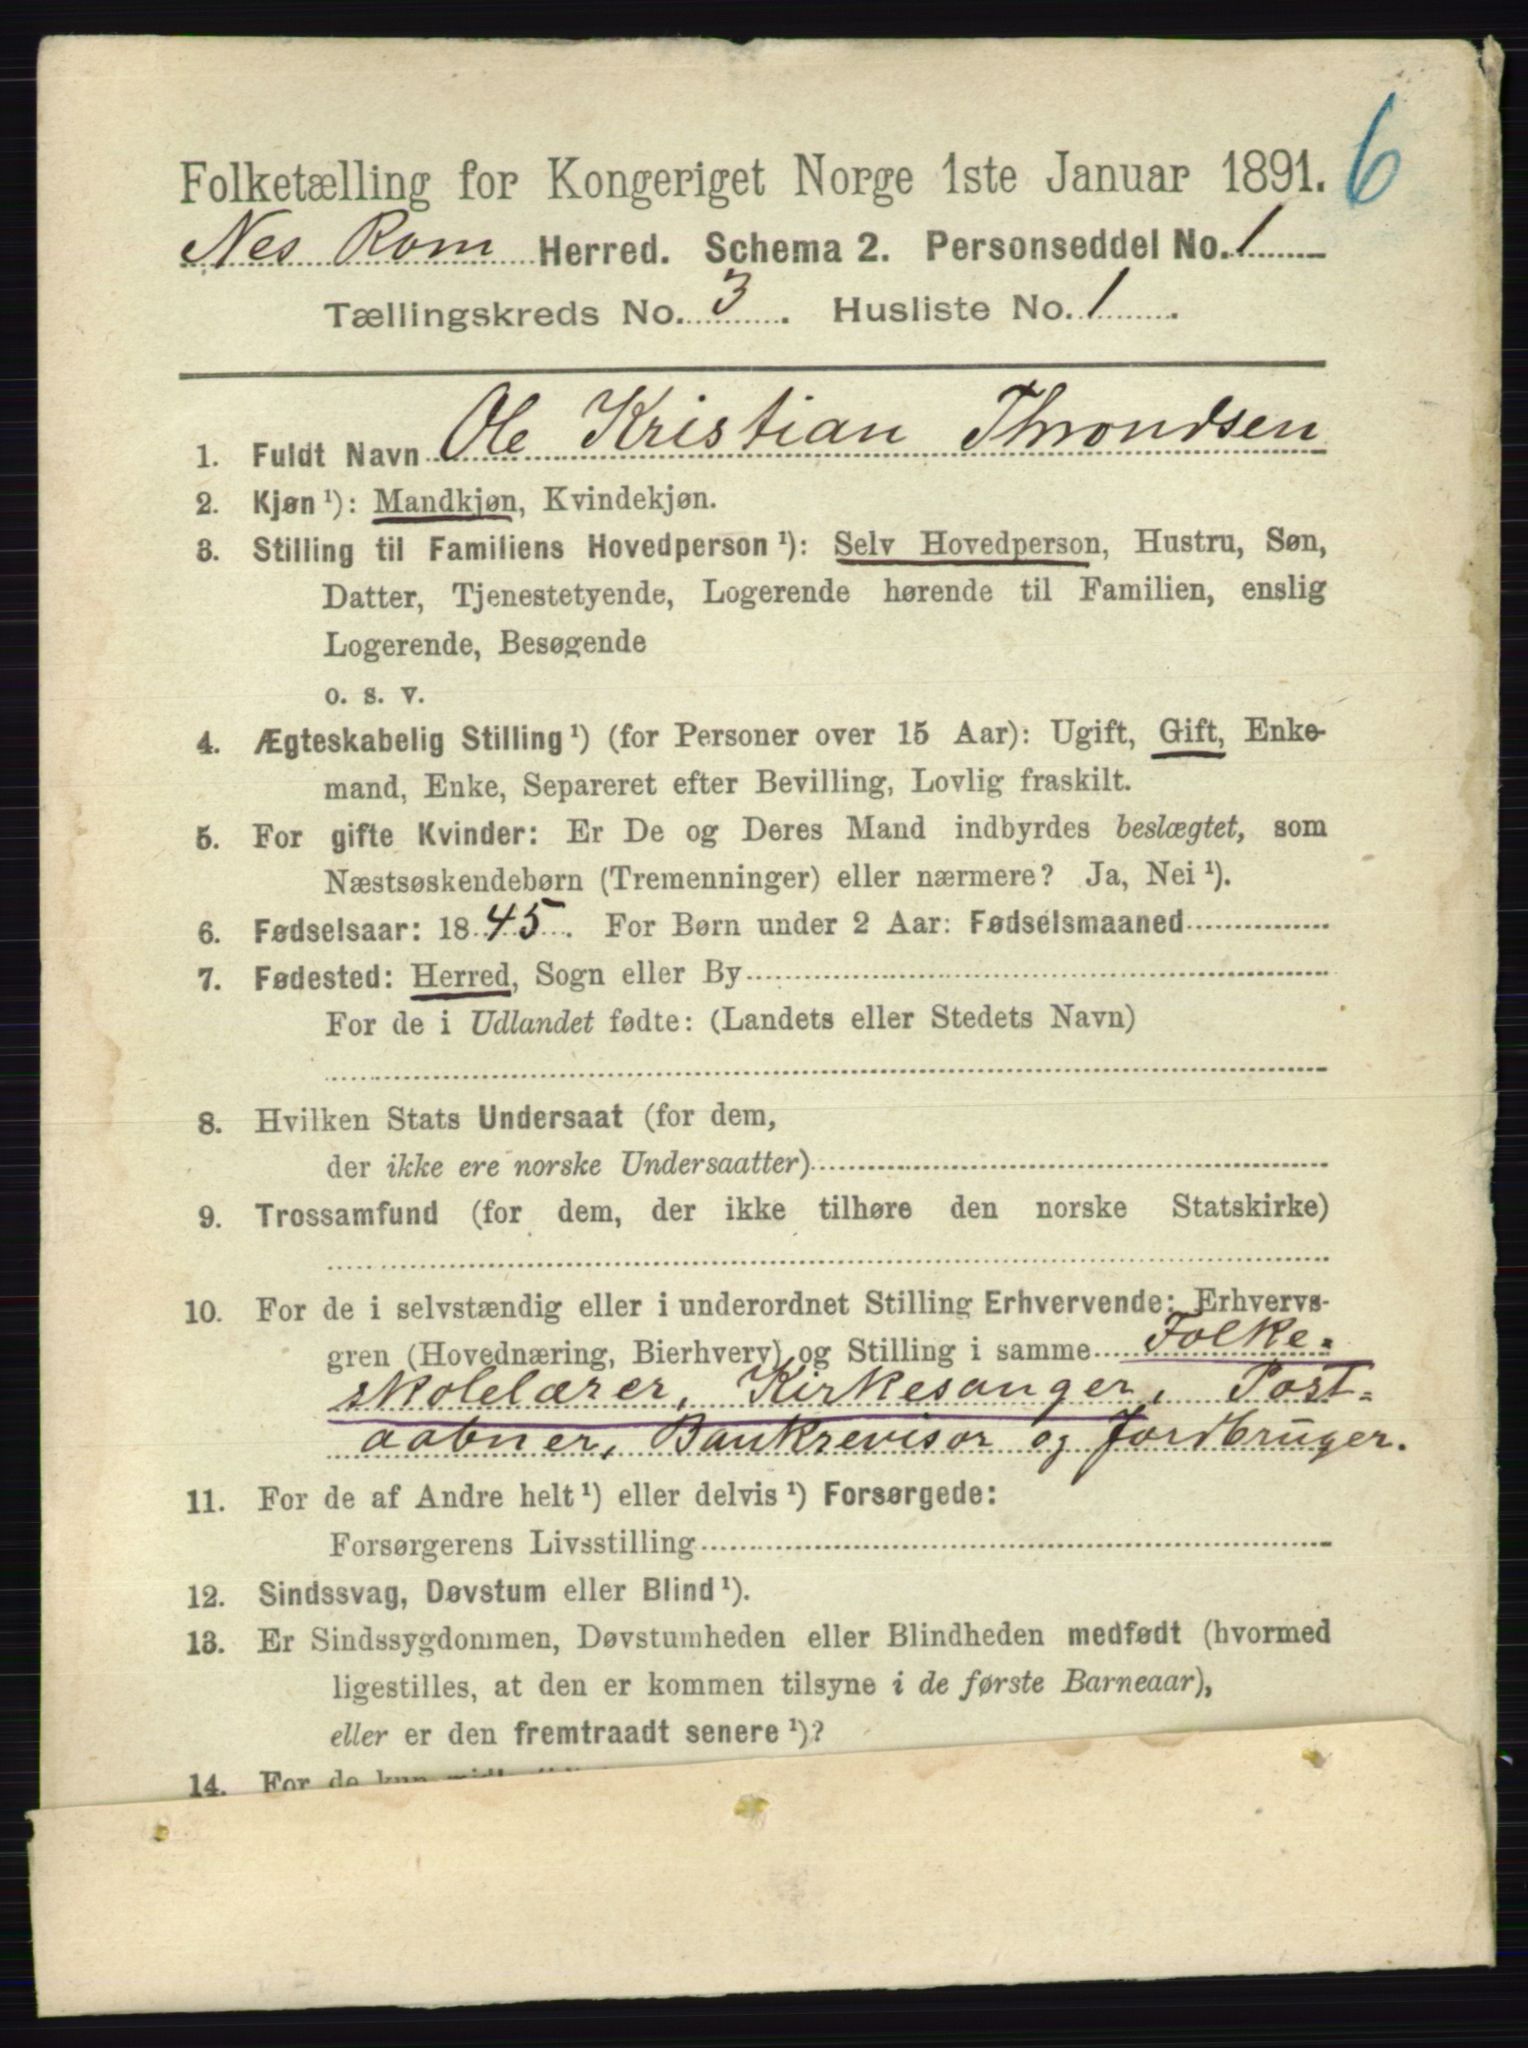 6
Folketælling for Kongeriget Norge 1ste Januar 1891.
Nes Rom Herred. Schema 2. Personseddel No. 1
Tællingskreds No. 3. Husliste No. 1.
1. Fuldt Navn Ole Kristian Throndsen
2. Kjøn ¹): Mandkjøn, Kvindekjøn.
3. Stilling til Familiens Hovedperson ¹): Selv Hovedperson, Hustru, Søn,
Datter, Tjenestetyende, Logerende hørende til Familien, enslig
Logerende, Besøgende
o. s. v.
4. Ægteskabelig Stilling ¹) (for Personer over 15 Aar): Ugift, Gift, Enke-
mand, Enke, Separeret efter Bevilling, Lovlig fraskilt.
5. For gifte Kvinder: Er De og Deres Mand indbyrdes beslægtet, som
Næstsøskendebørn (Tremenninger) eller nærmere? Ja, Nei ¹).
6. Fødselsaar: 1845. For Børn under 2 Aar: Fødselsmaaned
7. Fødested: Herred, Sogn eller By
For de i Udlandet fødte: (Landets eller Stedets Navn)
8. Hvilken Stats Undersaat (for dem,
der ikke ere norske Undersaatter)
9. Trossamfund (for dem, der ikke tilhøre den norske Statskirke)
10. For de i selvstændig eller i underordnet Stilling Erhvervende: Erhvervs-
gren (Hovednæring, Bierhverv) og Stilling i samme Folke-
skolelærer, Kirkesanger, Post-
aabner, Bankrevisor og Jordbruger.
11. For de af Andre helt ¹) eller delvis ¹) Forsørgede:
Forsørgerens Livsstilling
12. Sindssvag, Døvstum eller Blind ¹).
13. Er Sindssygdommen, Døvstumheden eller Blindheden medfødt (hvormed
ligestilles, at den er kommen tilsyne i de første Barneaar),
eller er den fremtraadt senere ¹)?
14. For de kun